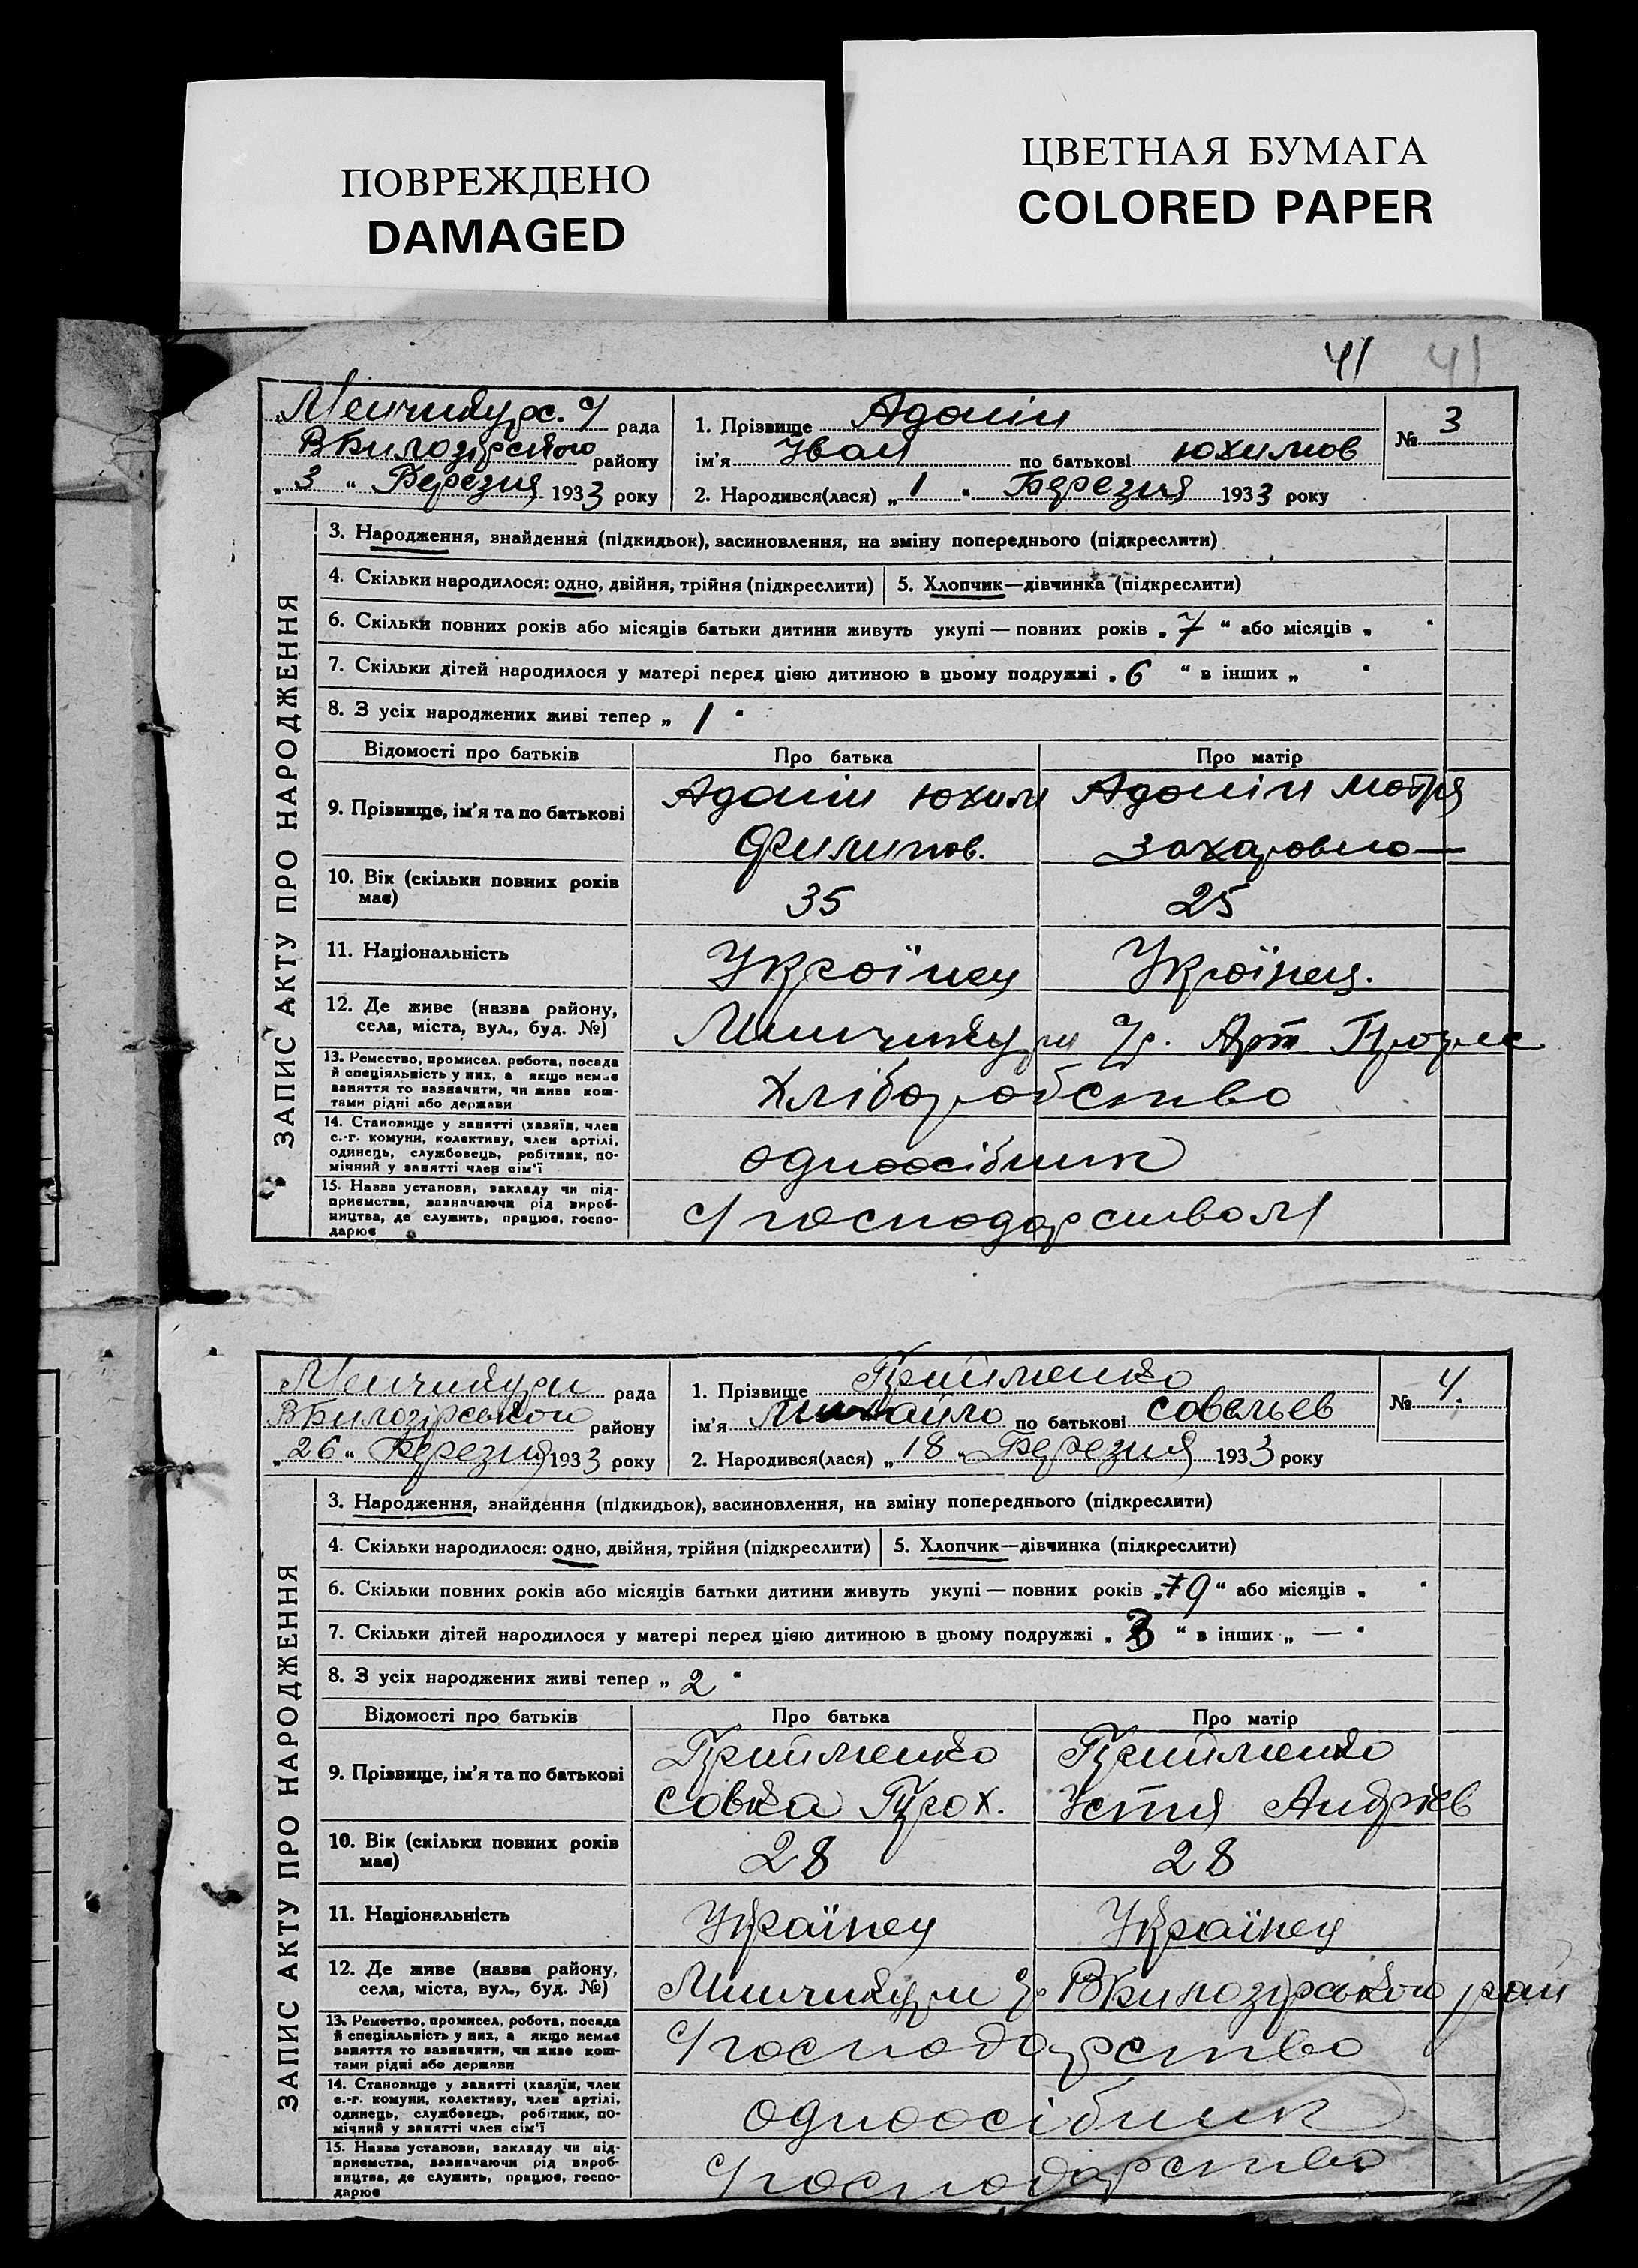 ПОВРЕЖДЕНО
DAMAGED
ЦВЕТНАЯ БУМАГА
COLORED PAPER
41 41
Менчикурс. с/ рада
ВБилозірського району
„ 3 “ Березня 1933 року
1. Прізвище Адамін
ім'я Іван по батькові Юхимов
2. Народився(лася) „ 1 “ Березня 1933 року
№ 3
ЗАПИС АКТУ ПРО НАРОДЖЕННЯ
3. Народження, знайдення (підкидьок), засиновлення, на зміну попереднього (підкреслити)
4. Скільки народилося: одно, двійня, трійня (підкреслити) 5. Хлопчик—дівчинка (підкреслити)
6. Скільки повних років або місяців батьки дитини живуть укупі — повних років „ 7 “ або місяців „ “
7. Скільки дітей народилося у матері перед цією дитиною в цьому подружжі „ 6 “ в інших „ “
8. З усіх народжених живі тепер „ 1 “
Відомості про батьків Про батька Про матір
9. Прізвище, ім'я та по батькові
Адамін Юхим Адамін Мотря
Филипов. Захаровна
10. Вік (скільки повних років має) 35 25
11. Національність Українец Українец.
12. Де живе (назва району,
села, міста, вул., буд. №)
Менчикури Арт
13. Ремество, промисел, робота, посада
й спеціяльність у них, а якщо немає
заняття то зазначити, чи живе кош-
тами рідні або держави
Хліборобство
14. Становище у занятті (хазяїн, член
с.-г. комуни, колективу, член артілі,
одинець, службовець, робітник, по-
мічний у занятті член сім'ї
одноосібник
15. Назва установи, закладу чи під-
приємства, зазначаючи рід вироб-
ництва, де служить, працює, госпо-
дарює
с/господарством
Менчикури рада
ВБилозірського району
„ 26 “ Березня 1933 року
1. Прізвище Прийменко
ім'я Михайло по батькові Савельев
2. Народився(лася) „ 18 “ Березня 1933 року
№ 4.
ЗАПИС АКТУ ПРО НАРОДЖЕННЯ
3. Народження, знайдення (підкидьок), засиновлення, на зміну попереднього (підкреслити)
4. Скільки народилося: одно, двійня, трійня (підкреслити) 5. Хлопчик—дівчинка (підкреслити)
6. Скільки повних років або місяців батьки дитини живуть укупі — повних років „ 9 “ або місяців „ “
7. Скільки дітей народилося у матері перед цією дитиною в цьому подружжі „ 3 “ в інших „ — “
8. З усіх народжених живі тепер „ 2 “
Відомості про батьків Про батька Про матір
9. Прізвище, ім'я та по батькові
Прийменко Прийменко
Савка Прох. Устя Андріев
10. Вік (скільки повних років має) 28 28
11. Національність Українец Українец
12. Де живе (назва району,
села, міста, вул., буд. №)
Менчикури ВБилозірського рай
13. Ремество, промисел, робота, посада
й спеціяльність у них, а якщо немає
заняття то зазначити, чи живе кош-
тами рідні або держави
с/господарство
14. Становище у занятті (хазяїн, член
с.-г. комуни, колективу, член артілі,
одинець, службовець, робітник, по-
мічний у занятті член сім'ї
одноосібник
15. Назва установи, закладу чи під-
приємства, зазначаючи рід вироб-
ництва, де служить, працює, госпо-
дарює
с/господарство